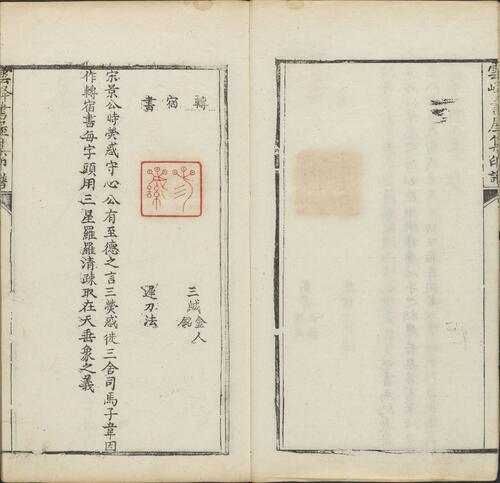 雲峰書屋集印譜
轉宿書
三緘金人銘
遲刀法
宋景公時熒惑守心公有至德之言三熒惑徙三舍司馬子韋因
作轉宿書每字頭用三星羅羅清疎取在天垂象之義
雲峰書屋集印譜